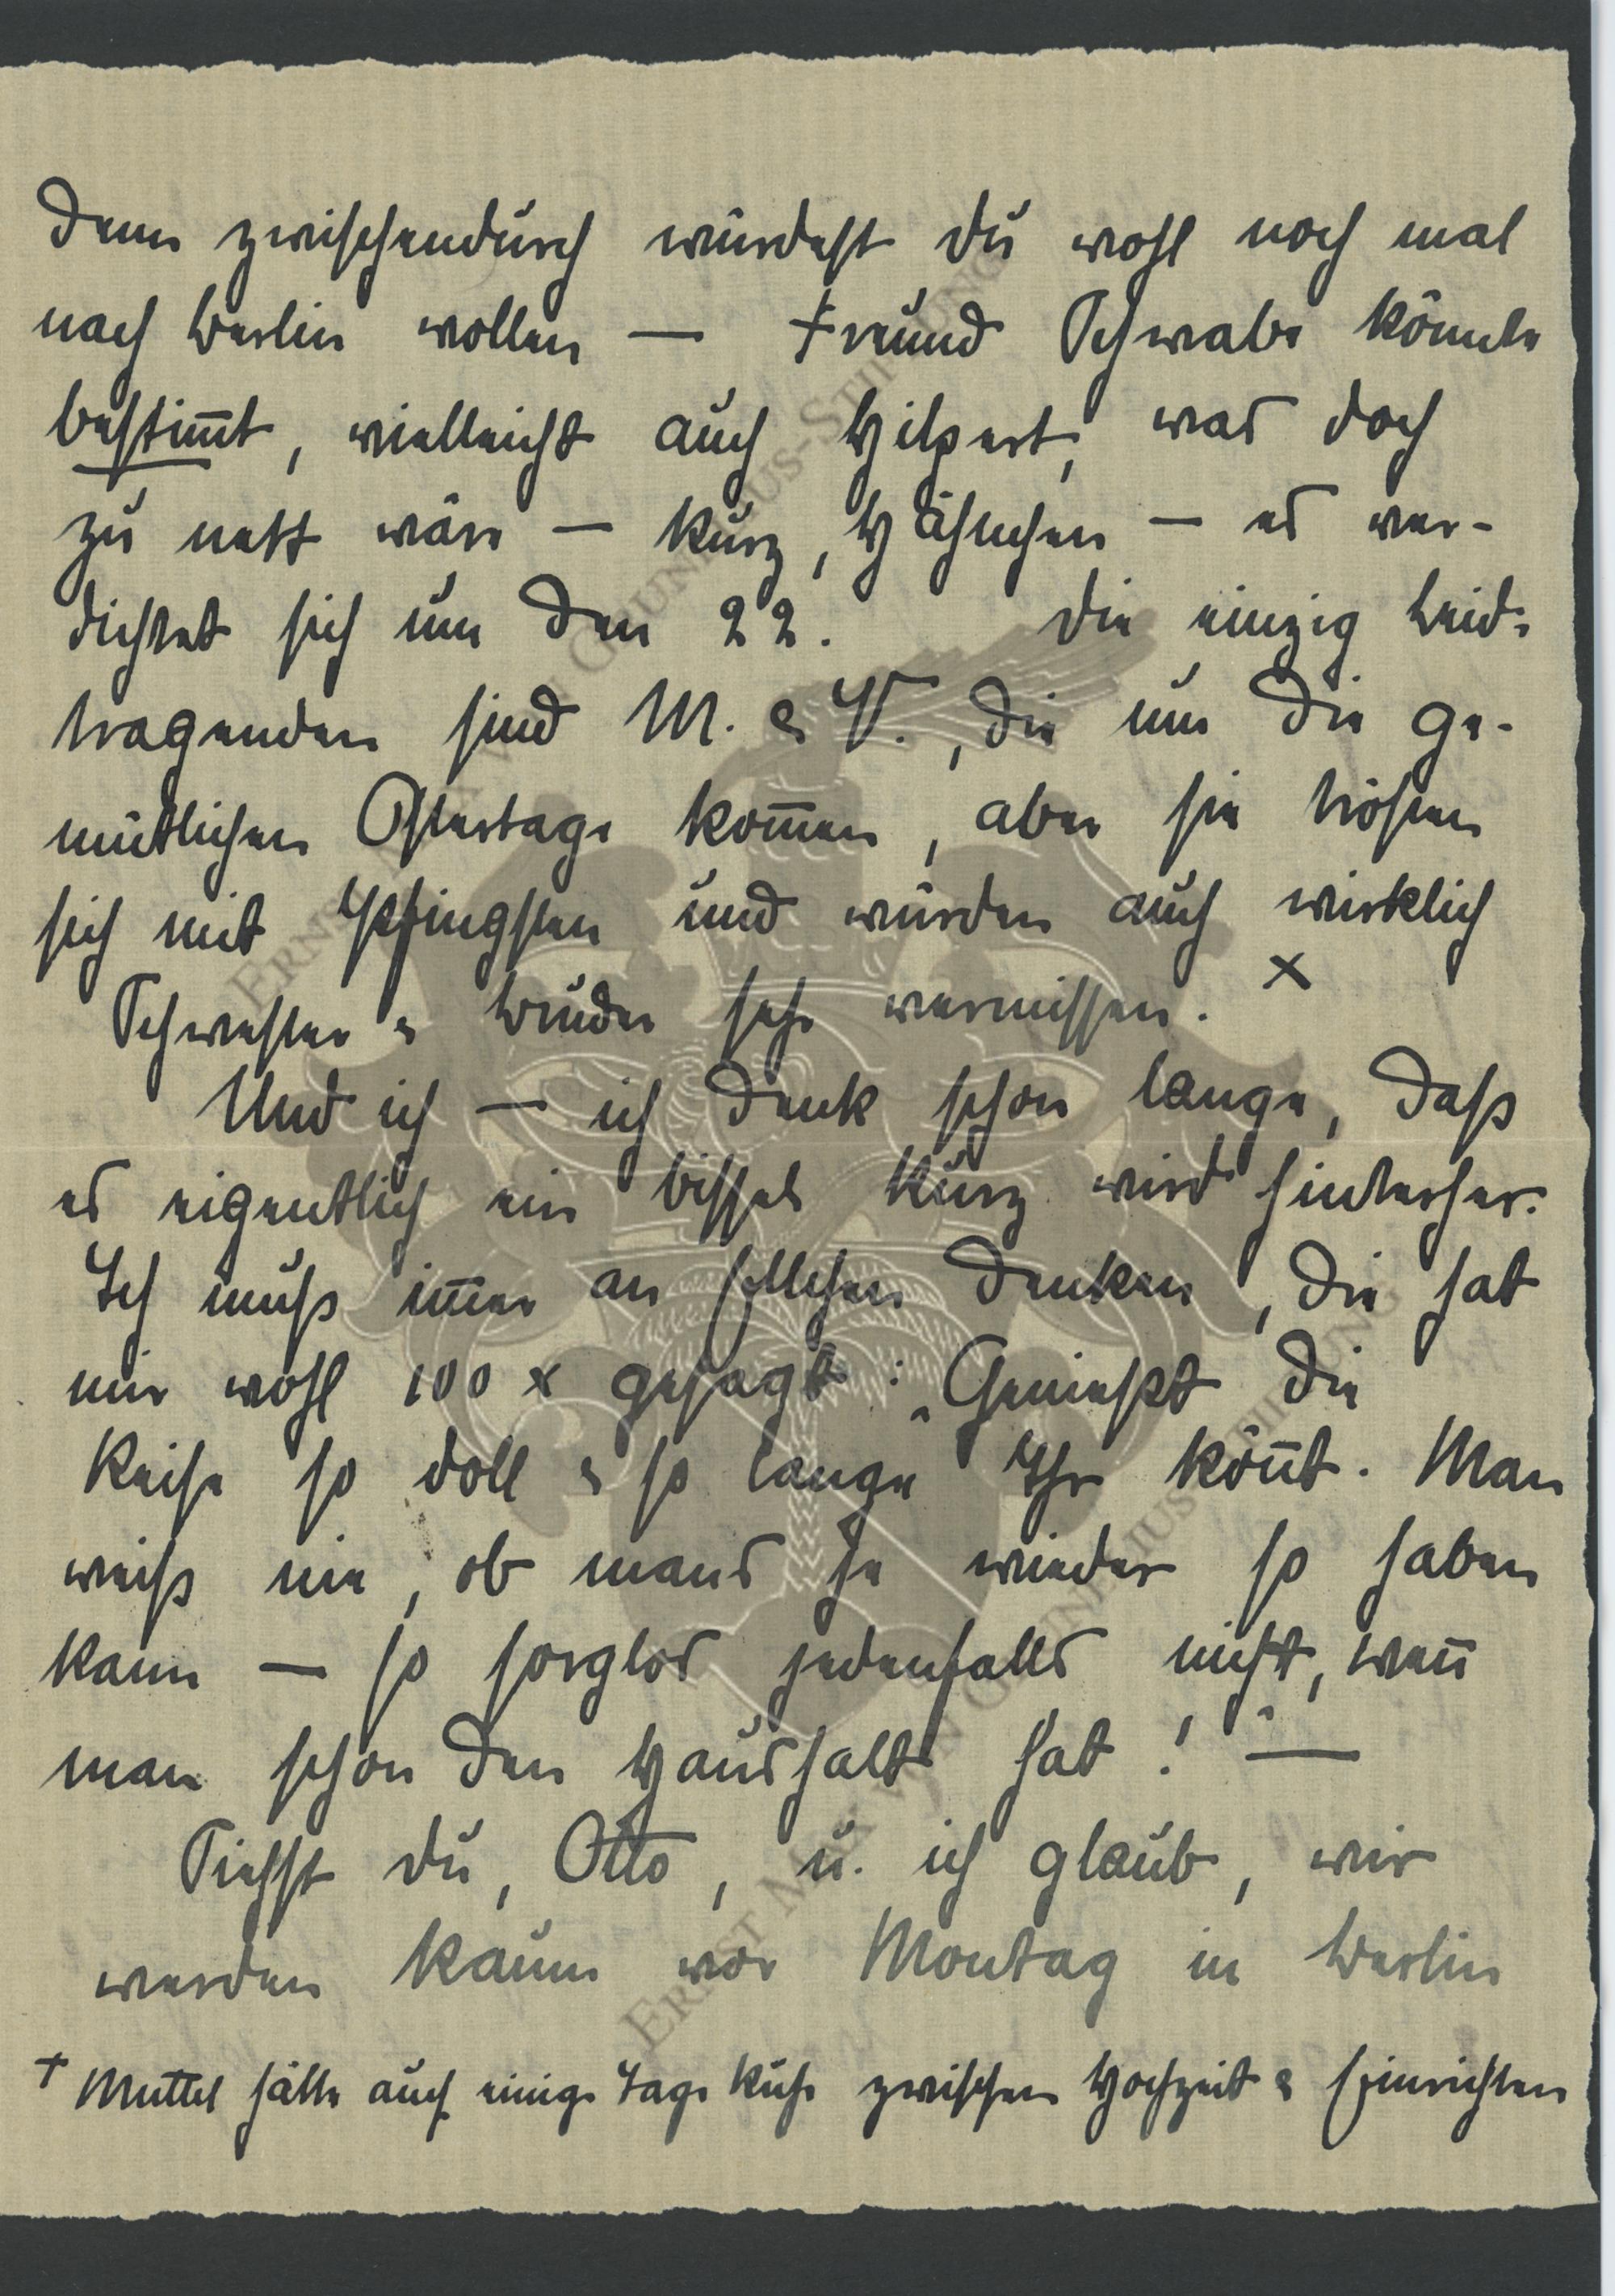 denn zwischendurch würdest du wohl noch mal
nach Berlin wollen — Freund Schwabe könnte
bestim̅t, vielleicht auch Hilpert, was doch
zu nett wäre — kurz, Hähnchen — es ver-
dichtet sich um den 22. Die einzig Leid-
tragenden sind M. & V., die um die ge-
mütlichen Ostertage kom̅en, aber sie trösten
sich mit Pfingsten und würden auch wirklich
Schwester & Bruder sehr vermissen. ×
Und ich — ich denk schon lange, daß
es eigentlich ein bissel kurz wird hinterher.
Ich muß im̅er an denken, die hat
mir wohl 100 × gesagt: „Genießt die
Reise so doll & so lange Ihr kön̅t. Man
weiß nie, ob mans je wieder so haben
kann — so sorglos jedenfalls nicht, wen̅
man schon den Haushalt hat!“ —
Siehst du, Otto, u. ich glaub, wir
werden kaum vor Montag in Berlin
+ Muttel hätte auch einige Tage Ruhe zwischen Hochzeit & Einrichten
ERNST MAX VON GRUNELIUS-STIFTUNG
ERNST MAX VON GRUNELIUS-STIFTUNG